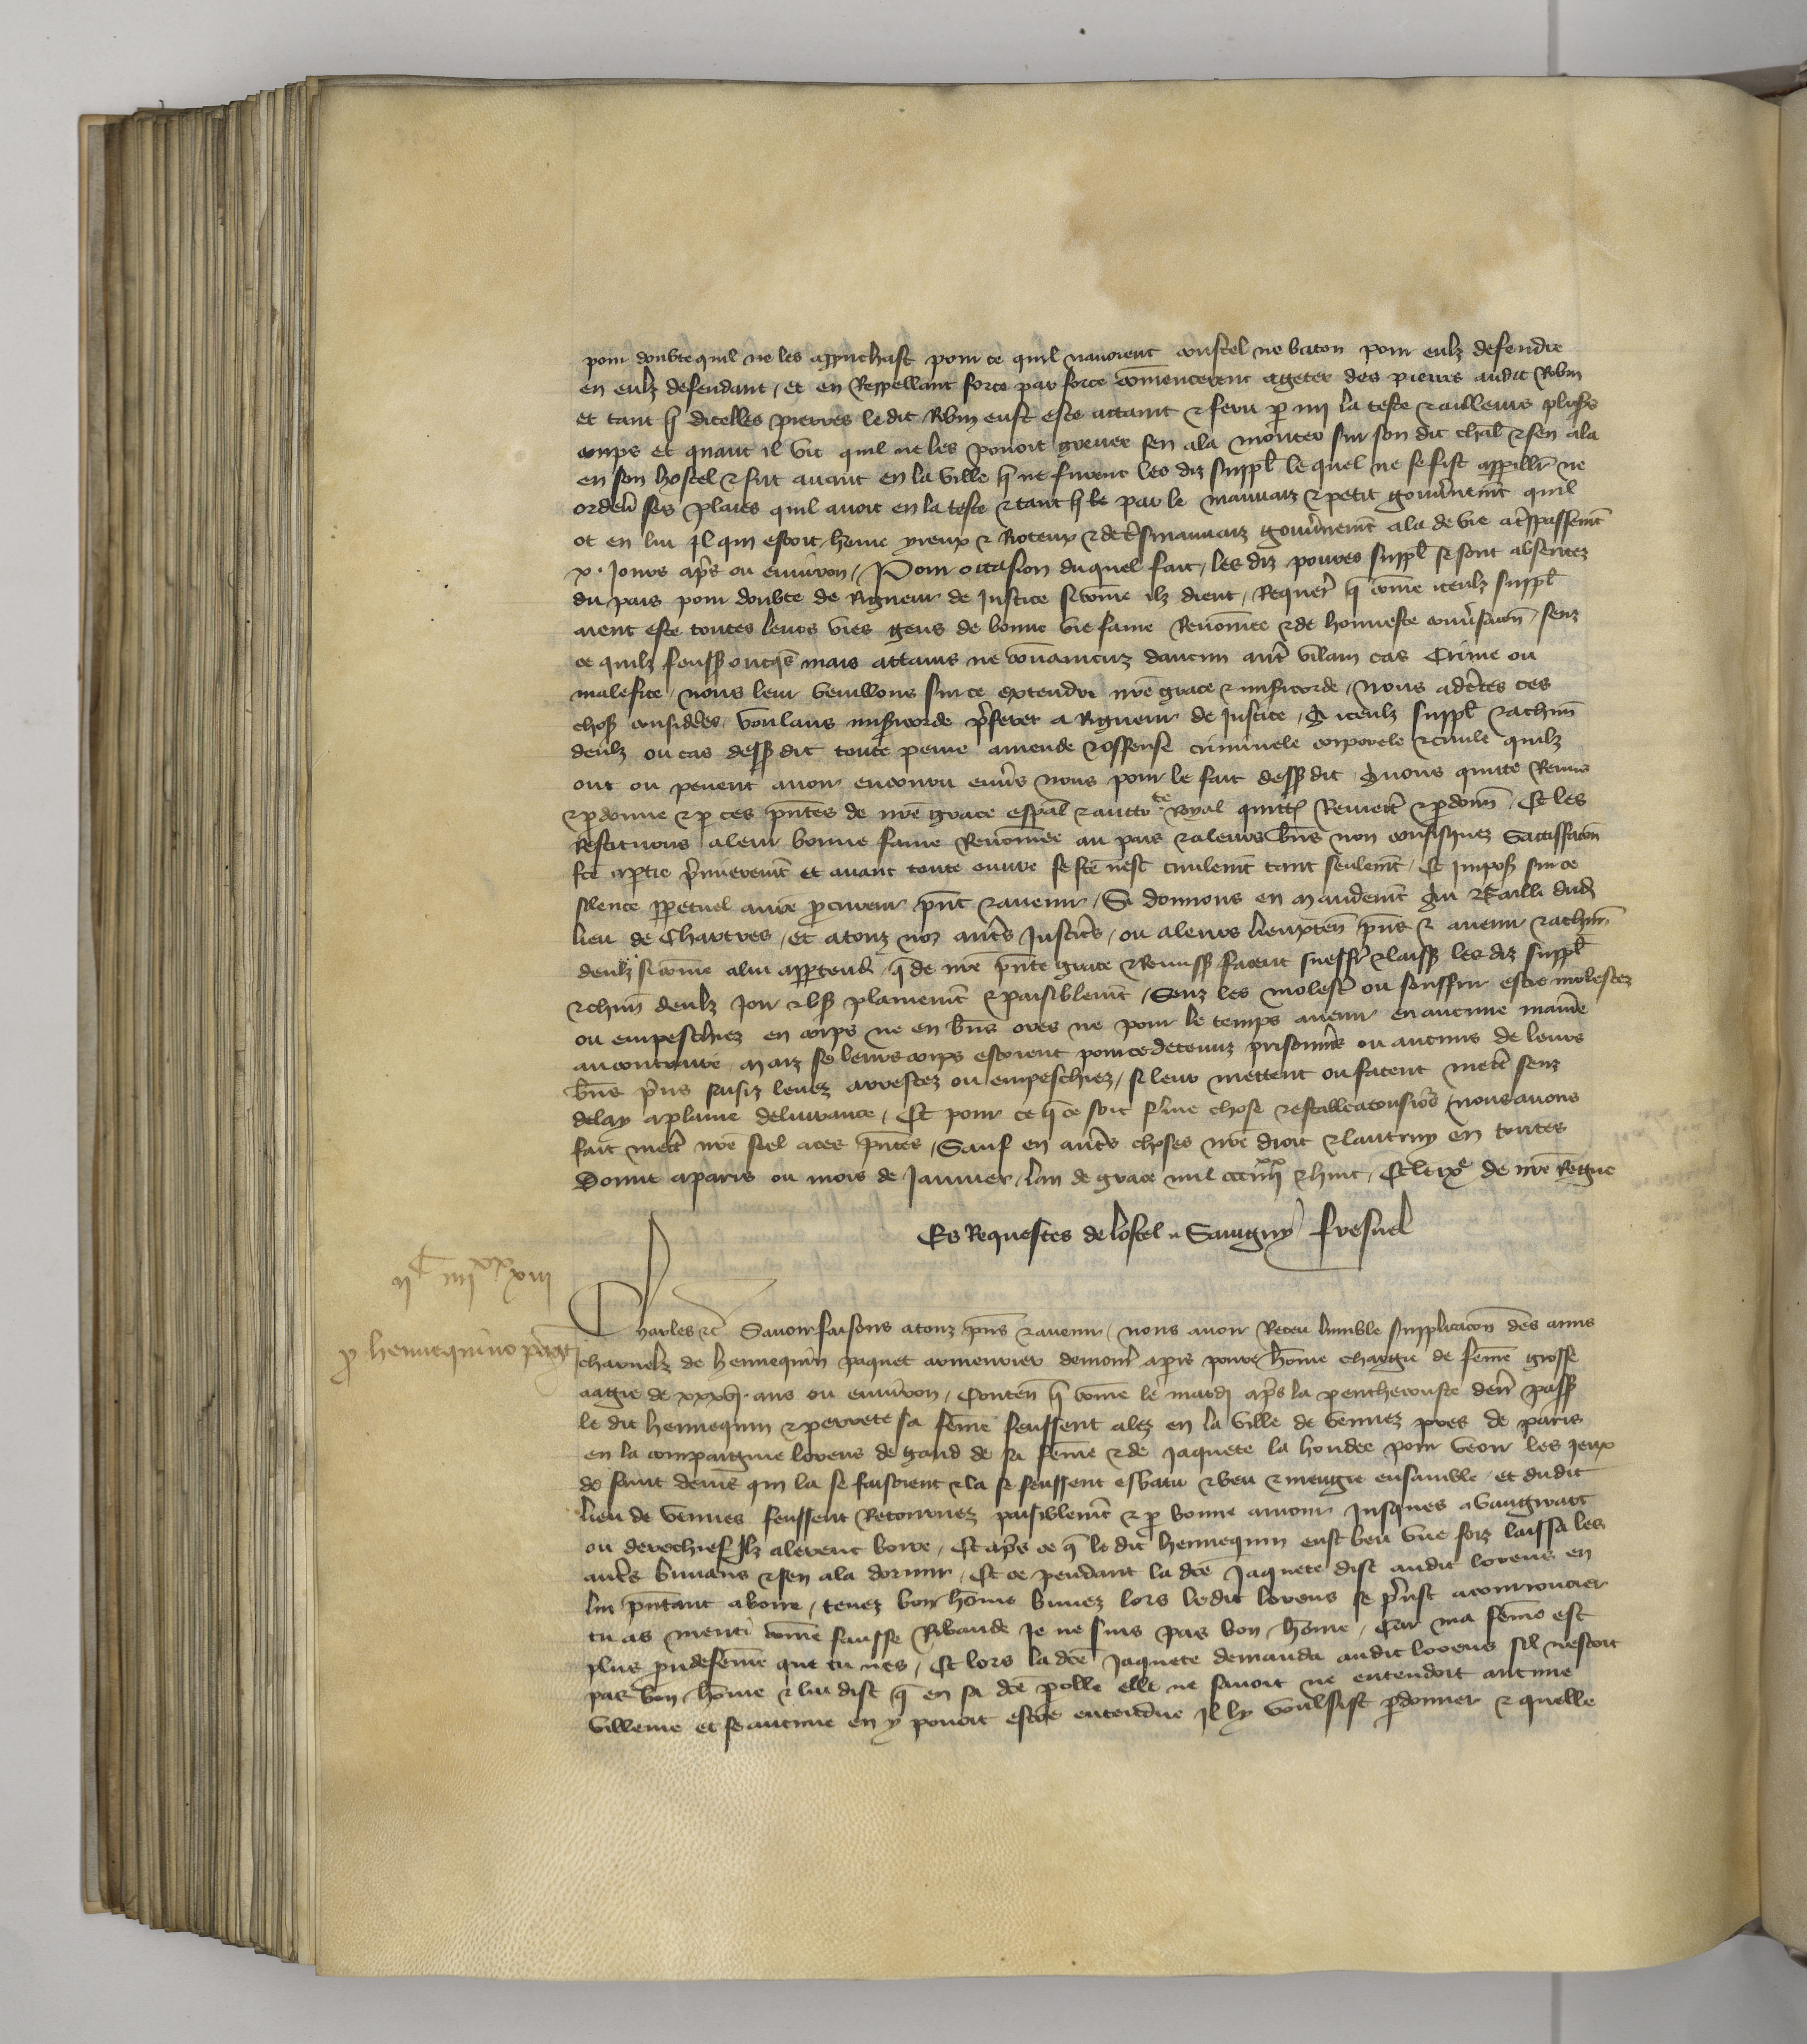 pour doubte quil ne les aprnchast pour ce quil navoient coustel ne baton pour eulz defendre
en eulz defendant / et en Repellant force par force comencerent a geter des pierres audit Robin
et tant q̃ dicelles pierres le dit Robin eust este attaint & feru p̱ mi la teste & ailleurs plus̃s
coups et quant il vit quil ne les povoit grever sen ala monter sur son dit chal̃ & sen ala
en son hostel & fut avant en la ville q̃ ne furent les diz suppl̃ le quel ne se fist appillr̃ ne
ordeñ ses plaies quil avoit en la teste & tant q̃ par le mauvaiz & petit gouṽnemt̃ quil
ot en lui Il qui estoit home yreux & Roteux & de tres mauvaiz gouṽnemt̃ ala de vie a tr̃spassemt̃
x. Jours apr̃s ou environ / Pour occasion duquel fait / les diz povres suppl̃ se sont absentez
du pais pour doubte de Rigueur de Justice si come ilz dient / Requer̃ q̃ come iceulz suppl̃
aient este toutes leurs vies gens de bonne vie fame Renomee & de honneste conṽsacon̄ / senz
ce quilz feuss̃ oncqs̃ mais attains ne convaincuz daucun autr̃ vilain cas Crime ou
malefice / nous leur veuillons sur ce extendre nr̃e grace & miṣicorde / nous adc̃tes ces
chos̃ consider̃es voulans miṣicorde pr̃ferer a Rigueur de Justice / A iceulz suppl̃ & a chun̄
deulz ou cas dess̃ dit toute peine amende & offense criminele corporele & civile quilz
ont ou pevent avoir encouru env̄s nous pour le fait dess̃ dit Avons quicte Remis
& p̱donne & p̱ ces pñtes de nr̃e grace esp̄al & auctote Royal quittõs Remett̃ & p̱don̄ / Et les
Restituons a leur bonne fame Renomee au pais & a leurs bñs non confisquez Satisffacon̄
fc̃e a p̱tie pr̃mierem̃t et avant toute euvre se fc̃e nest civilem̃t tant seulem̃t / Et Impos̃ sur ce
silence pp̱etuel a nr̃e p̱cureur pñt & avenir / Si donnons en mandem̃t Au Bailli dud̃
lieu de Chartres / Et a touz noz autr̃s Justic̃s / ou a leurs lieuxten̄ pñs & avenir & a chun̄
deulz si come a lui app̱tend̃ / q̃ de nr̃e pñte grace & Remiss̃ facent sueffr̃ & laiss̃ les diz suppl̃
& chun̄ deulz Joir & us̃ plainem̃t & paisiblem̃t / Senz les molest̃ ou souffrir estre molestez
ou empeschiez en corps ne en bñs ores ne pour le temps avenir en aucune manie͂re
au contraire / Mais se leurs corps estoient pour ce detenuz prisonñs ou aucuns de leurs
bñs pr̃ns saisiz levez arrestez ou empeschiez / si leur mettent ou facent mett̃ senz
delay a plaine delivrance / Et pour ce q̃ ce soit f̃me chose & estable a tousjors̃ / nous avons
fait mett̃ nr̃e seel a ces pñtes / Sauf en autr̃s choses nr̃e droit & lautruy en toutes
Donne a paris ou mois de Janvier / lan de grace mil ccc iiiixx & huit / Et le ixe de nr̃e Regne
Es Requestes de lostel // Savigny fresnel
iiiixx xiii
p̱ hennequino paquet
Charles &c̃ Savoir faisons a touz pñs & avenir / nous avoir Receu lumble supplicacon̄ des amis
charnelz de Hennequin paquet armeurier demour̃ a p̱is povre home chargie de feme grosse
aagie de xxxvj. ans ou environ / Conten̄ q̃ come le mardj apr̃s la penthecouste dern̄ pass̃
le dit hennequin & perrete sa feme feussent alez en la ville de vennez pres de paris
en la compaignie lorens de gand de sa feme & de jaquete la houdee pour veoir les jeux
de saint denis qui la se faisoient & la se feussent esbatu & beu & mengie ensamble / et dudit
lieu de vennes feussent Retournez paisiblem̃t & p̱ bonne amour Jusques a vaugirart
ou derechief Ilz alerent boire / Et apr̃s ce q̃ le dit hennequin eust beu une foiz laissa les
autr̃s buvans & sen ala dormir / Et ce pendant la dc̃e Jaquete dist audit lorens en
lui pñtant a boire / tenez bon home buvez lors ledit lorens se pr̃nst a courroucier
tu as menti come fausse Ribaude Je ne suis pas bon home / Car ma feme est
plus preudefeme que tu nes / Et lors la dc̃e Jaquete demanda audit lorens sil nestoit
pas bon home & lui dist q̃ en sa dc̃e p̱olle elle ne savoit ne entendoit aucune
villenie et se aucune en y povoit estre entendue Il ly voulsist p̱donner & quelle